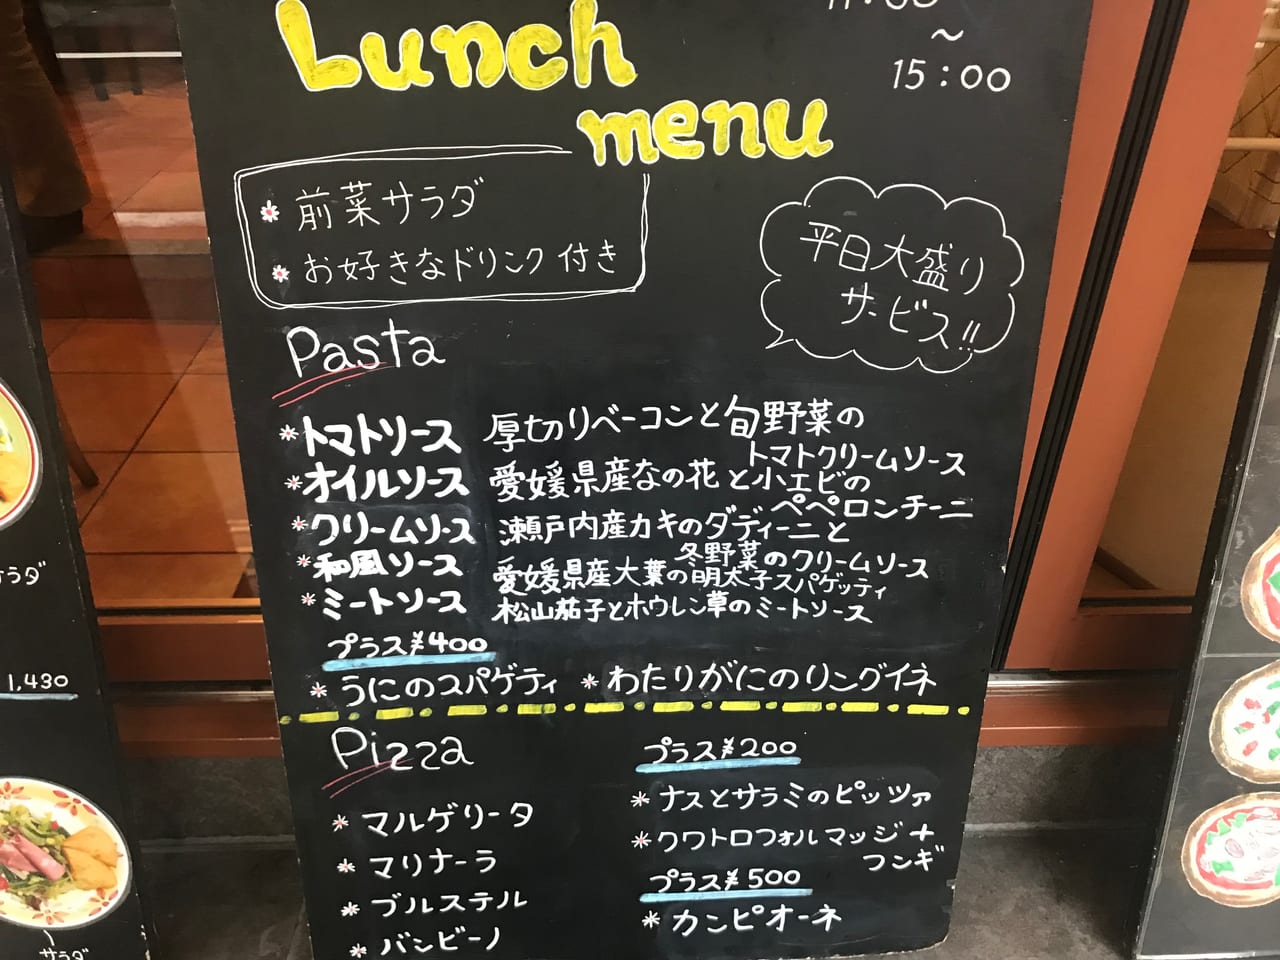 Lunch
menu
〜
15:00
*前菜サラダ
*お好きなドリンク付き
平日大盛り
サービス!!
Pasta
*トマトソース 厚切りベーコンと旬野菜の
トマトクリームソース
*オイルソース 愛媛県産なの花と小エビの
ペペロンチーニ
*クリームソース 瀬戸内産カキのタディーニと
冬野菜のクリームソース
*和風ソース 愛媛県産大葉の明太子スパゲッティ
*ミートソース 松山茄子とホウレン草のミートソース
プラス¥400
*うにのスパゲティ *わたりがにのリングイネ
Pizza
*マルゲリータ
*マリナーラ
*ブルステル
*バンビーノ
プラス¥200
*ナスとサラミのピッツァ
*クワトロフォルマッジ+
フンギ
プラス¥500
*カンピオーネ
ラダ
1,430
サラダ